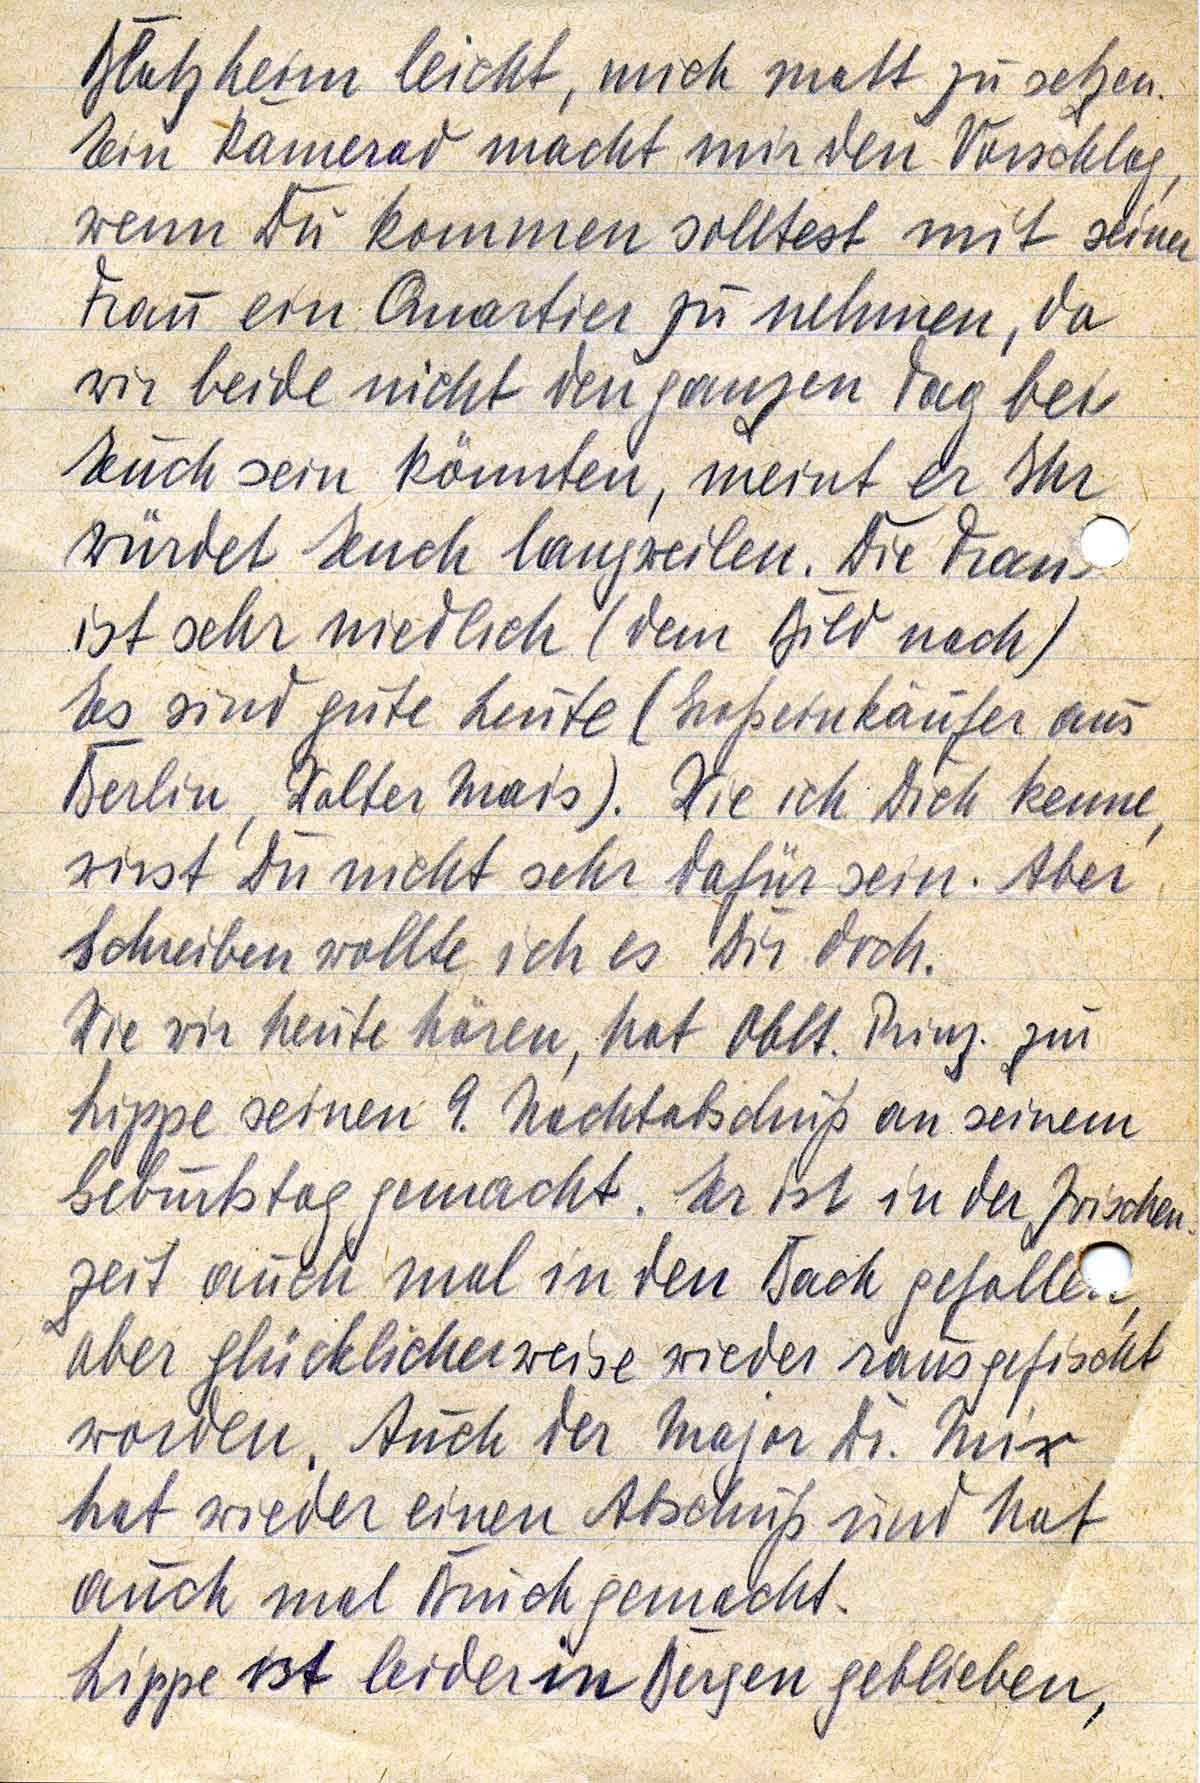 Blatzheim leicht, mich matt zu setzen.
Ein Kamerad macht mir den Vorschlag,
wenn Du kommen solltest mit seiner
Frau ein Quartier zu nehmen, da
wir beide nicht den ganzen Tag bei
Euch sein könnten, meint er Ihr
würdet Euch langweilen. Die Frau
ist sehr niedlich (dem Bild nach)
Es sind gute Leute (Großeinkäufer aus
Berlin, Walter Mais). Wie ich Dich kenne,
wirst Du nicht sehr dafür sein. Aber
schreiben wollte ich es Dir doch.
Wie wir heute hören, hat Oblt. Prinz. zur
Lippe seinen 9. Nachtabschuß an seinem
Geburtstag gemacht. Er ist in der Zwischen-
zeit auch mal in den Bach gefallen,
aber glücklicherweise wieder rausgefischt
worden. Auch der Major Dr. Mix
hat wieder einen Abschuß und hat
auch mal Bruch gemacht.
Lippe ist leider in Bergen geblieben,